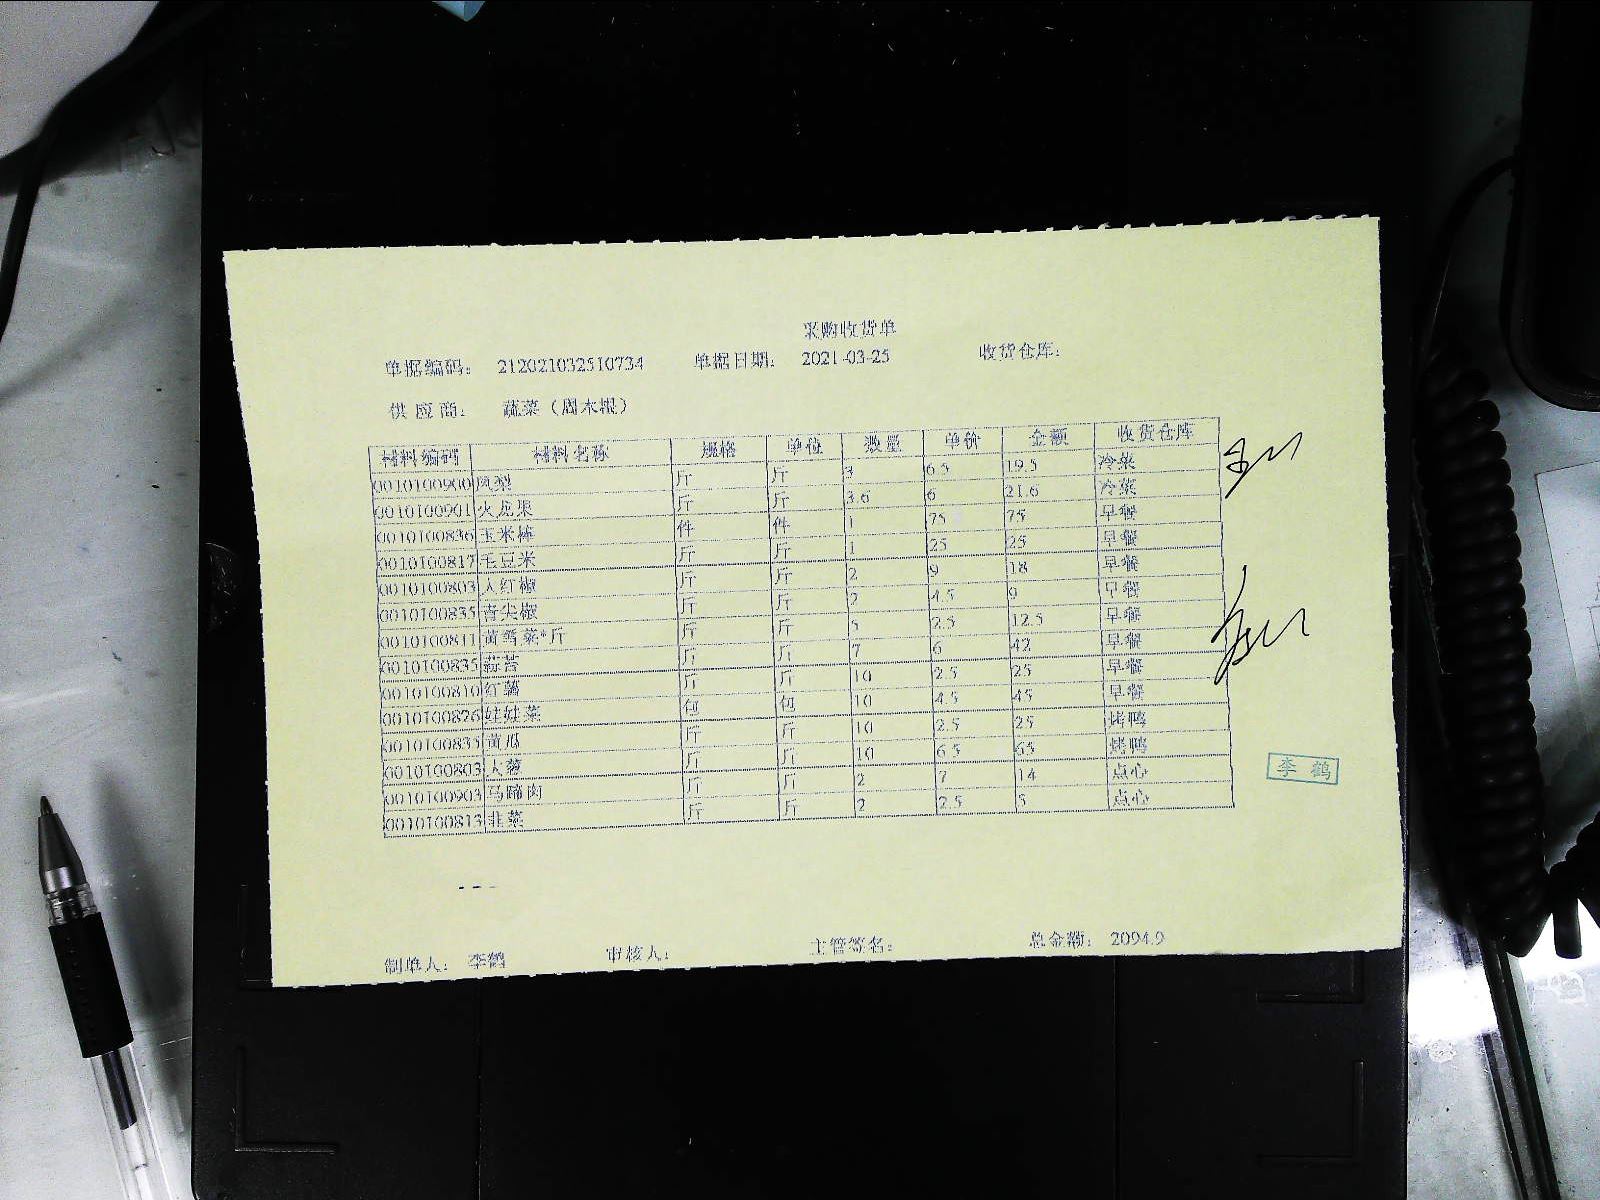 采购收货单
单据编码： 212021032510734 单据日期： 2021-03-25 收货仓库：
供应商： 蔬菜（周木根）
材料编码 材料名称 规格 单位 数量 单价 金额 收货仓库
0010100900 凤梨 斤 斤 3 6.5 19.5 冷菜
0010100901 火龙果 斤 斤 3.6 6 21.6 冷菜
0010100836 玉米棒 件 件 1 75 75 早餐
0010100817 毛豆米 斤 斤 1 25 25 早餐
0010100803 大红椒 斤 斤 2 9 18 早餐
0010100835 青尖椒 斤 斤 2 4.5 9 早餐
0010100811 黄雪菜*斤 斤 斤 5 2.5 12.5 早餐
0010100835 蒜苔 斤 斤 7 6 42 早餐
0010100810 红薯 斤 斤 10 2.5 25 早餐
0010100826 娃娃菜 包 包 10 4.5 45 早餐
0010100835 黄瓜 斤 斤 10 2.5 25 烤鸭
0010100803 大葱 斤 斤 10 6.5 65 烤鸭
0010100903 马蹄肉 斤 斤 2 7 14 点心
0010100813 韭菜 斤 斤 2 2.5 5 点心
李鹤
制单人： 李鹤 审核人： 主管签名： 总金额： 2094.9